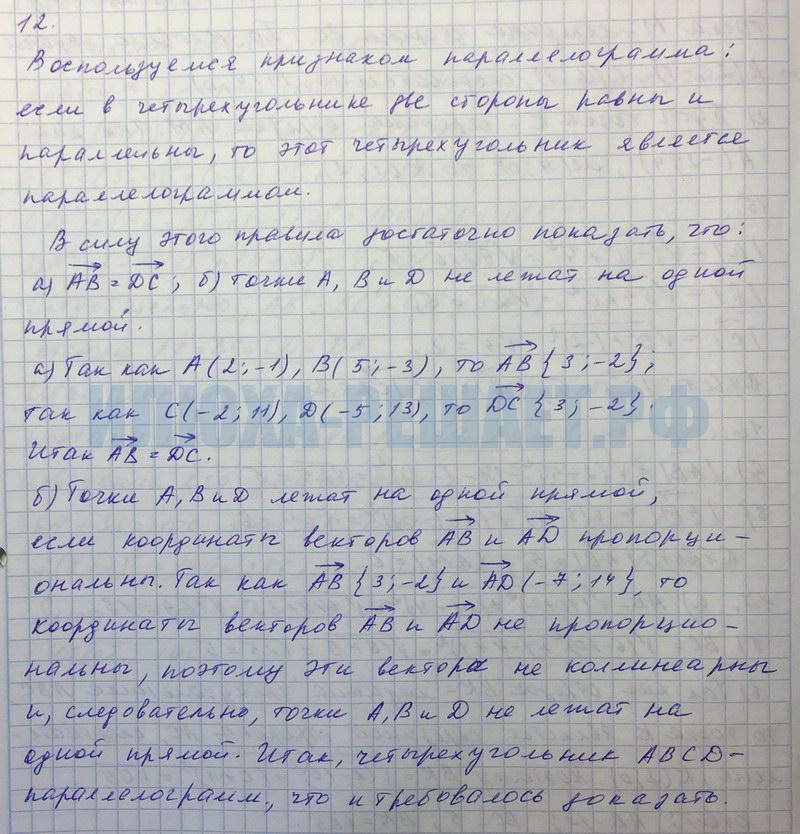 12.
Воспользуемся признаком параллелограмма:
если в четырехугольнике две стороны равны и
параллельны, то этот четырехугольник является
параллелограммом.
В силу этого правила достаточно показать, что:
а) AB = DC; б) точки A, B и D не лежат на одной
прямой.
а) Так как A(2;-1), B(5;-3), то AB{3;-2};
так как C(-2;11), D(-5;13), то DC{3;-2}.
ИЛЮХА-РЕШАЕТ.РФ
Итак AB = DC.
б) Точки A, B и D лежат на одной прямой,
если координаты векторов AB и AD пропорци-
ональны. Так как AB{3;-2} и AD(-7;14}, то
координаты векторов AB и AD не пропорцио-
нальны, поэтому эти вектора не коллинеарны
и, следовательно, точки A, B и D не лежат на
одной прямой. Итак, четырехугольник ABCD-
параллелограмм, что и требовалось доказать.